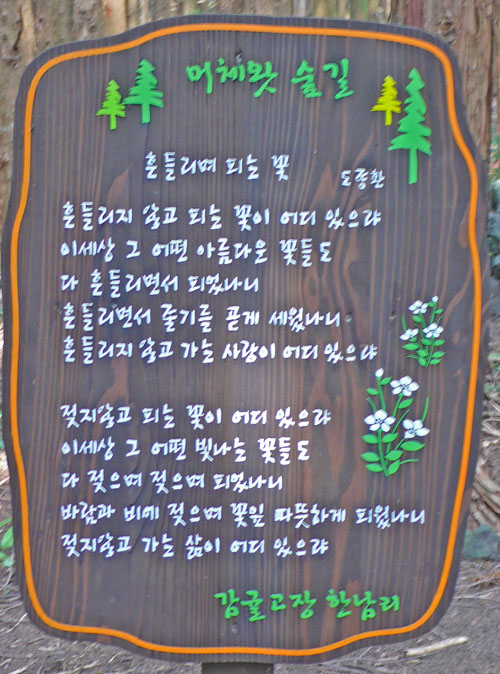 머체왓 숲길
흔들리며 피는 꽃
도종환
흔들리지 않고 피는 꽃이 어디 있으랴
이세상 그 어떤 아름다운 꽃들도
다 흔들리면서 피었나니
흔들리면서 줄기를 곧게 세웠나니
흔들리지 않고 가는 사랑이 어디 있으랴
젖지않고 피는 꽃이 어디 있으랴
이세상 그 어떤 빛나는 꽃들도
다 젖으며 젖으며 피었나니
바람과 비에 젖으며 꽃잎 따뜻하게 피웠나니
젖지않고 가는 삶이 어디 있으랴
감귤고장 한남리